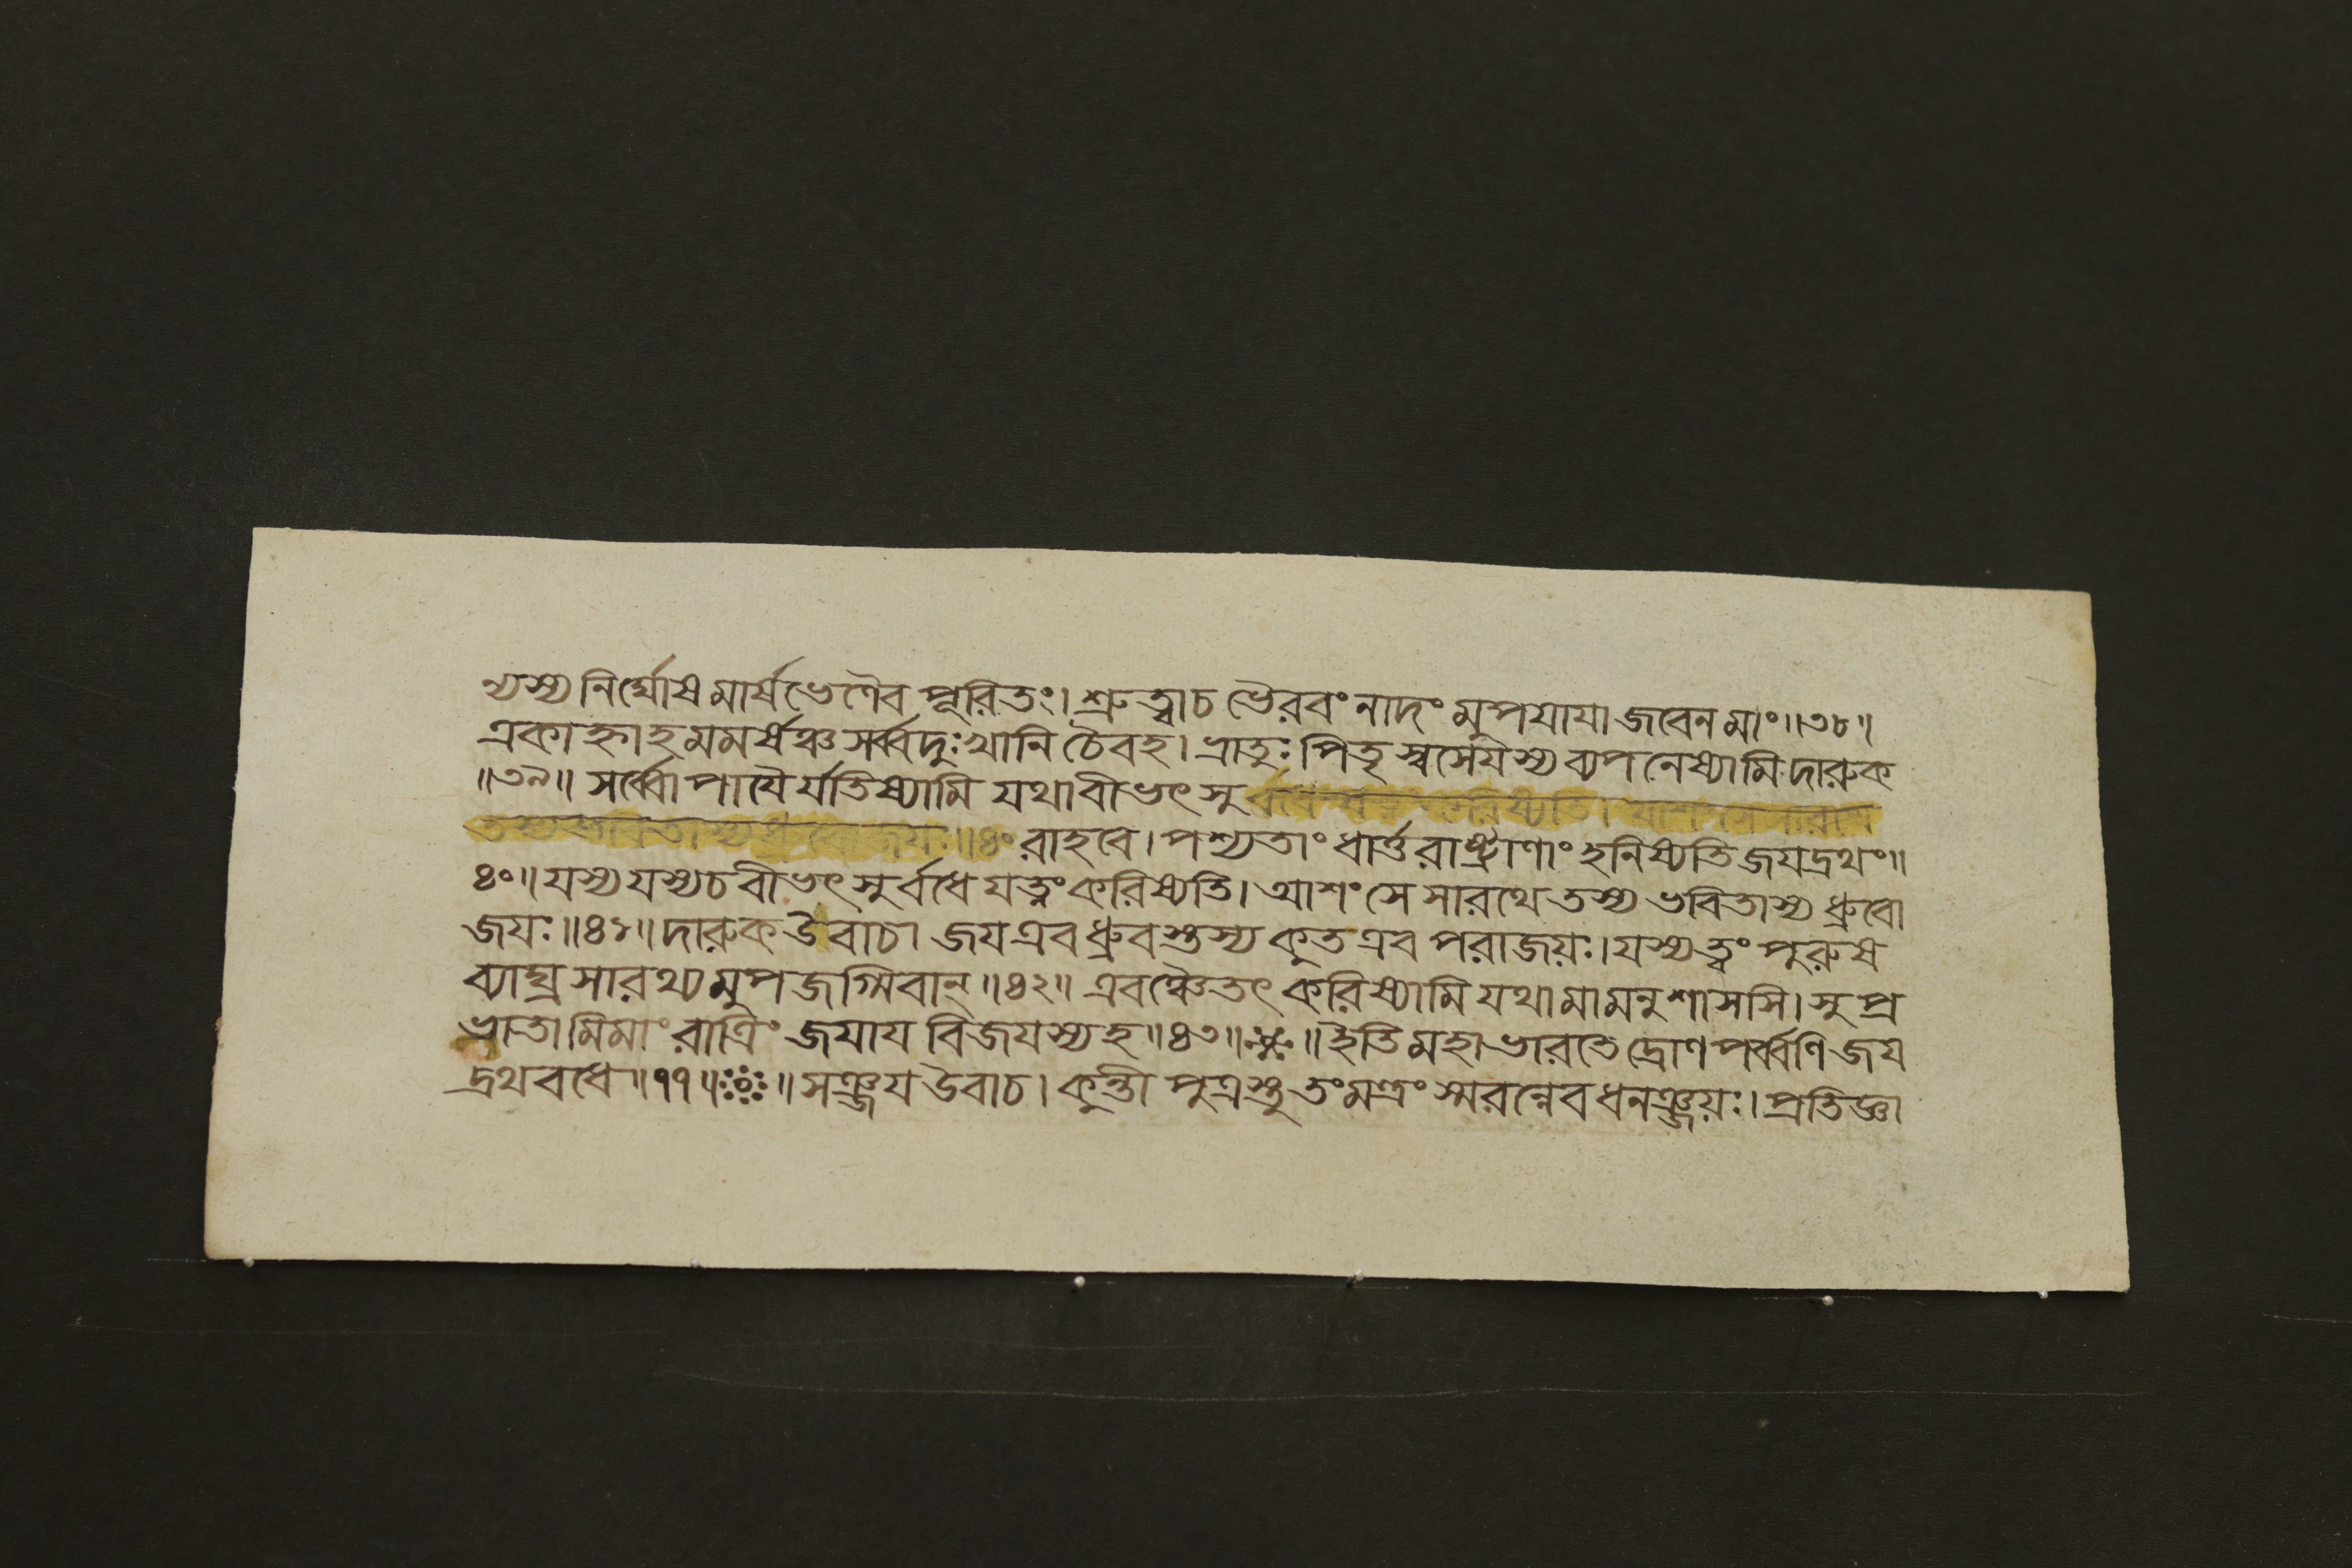 ন্যস্য নির্ঘোষমার্ষভেণৈব পূরিতং। শ্রুত্বা চ ভৈরবং নাদং মুপযাযা জবেন মাং॥৩৮॥
একাহ্নাহমমর্ষঞ্চ সর্ব্বদুঃখানি চৈবহ। ভ্রাতুঃ পিতৃস্বসেযস্য ব্যপনেষ্যামি দারুক
॥৩৯॥ সর্ব্বোপাযৈর্যতিষ্যামি যথা বীভৎসু
রাহবে। পশ্যতাং ধার্ত্তরাষ্ট্রাণাং হনিষ্যতি জযদ্রথং॥
৪০॥ যস্য যস্য চ বীভৎসুর্বধে যত্নং করিষ্যতি। আশংসে সারথে তস্য ভবিতাস্য ধ্রুবো
জযঃ॥৪১॥ দারুক উবাচ। জয এব ধ্রুবস্তস্য কুত এব পরাজয়ঃ। যস্য ত্বং পুরুষ
ব্যাঘ্র সারথ্যমুপজগ্মিবান্॥৪২॥ এবঞ্চৈতৎ করিষ্যামি যথা মামনুশাসসি। সুপ্র
ভাতামিমাং রাত্রিং জযায বিজযস্য হ॥৪৩॥ ॥ইতি মহাভারতে দ্রোণপর্ব্বণি জয
দ্রথবধে॥৭৭॥ ॥সঞ্জয উবাচ। কুন্তীপুত্রস্তু তং মন্ত্রং স্মরন্নেব ধনঞ্জয়ঃ। প্রতিজ্ঞা